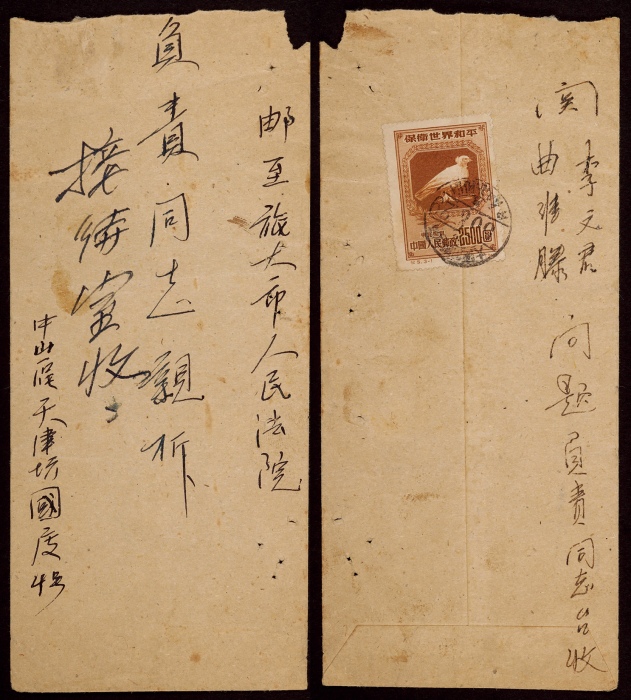 邮至旅大市人民法院
負責同志親折
接待室收
中山区天津坊國度号
保衞世界和平
中國人民郵政2500圓
李文君
関曲
問題負責同志台收